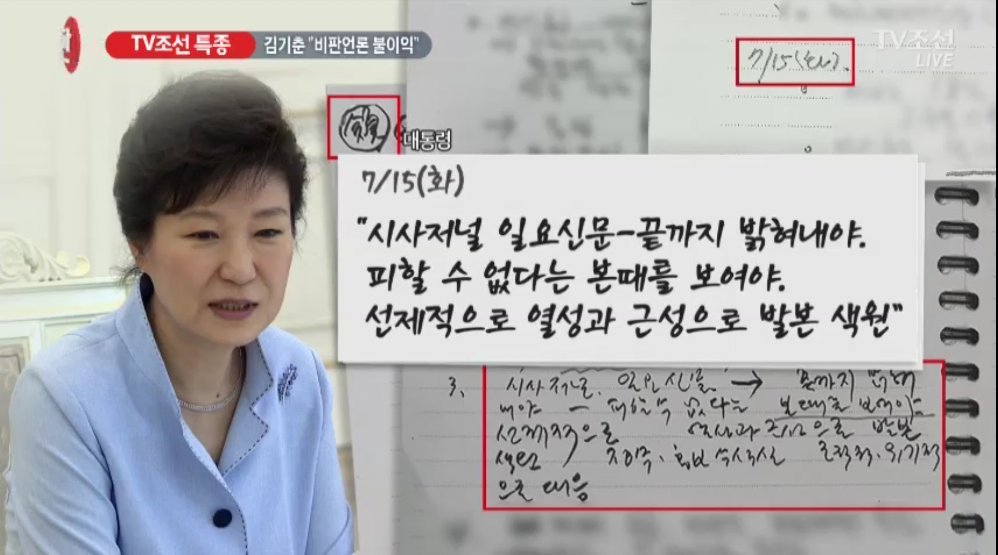 TV조선 특종 김기춘 "비판언론 불이익"
TV조선
LIVE
7/15(화).
대통령
7/15(화)
"시사저널 일요신문-끝까지 밝혀내야.
피할 수 없다는 본때를 보여야.
선제적으로 열성과 근성으로 발본 색원"
3. 시사저널. 일요신문 → 끝까지 밝혀
내야 - 피할 수 없다는 본때를 보여야
선제적으로 열성과 근성으로 발본
색원
으로 대응